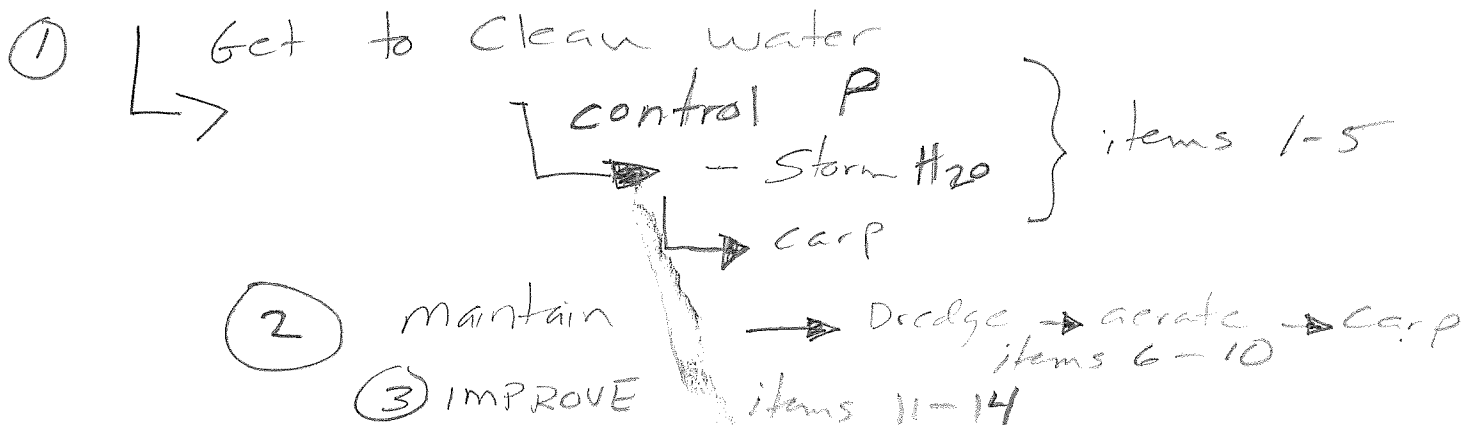 ① Get to Clean water
control P
- Storm H20 } items 1-5
carp
② maintain → Dredge → aerate → Carp
items 6-10
③ IMPROVE items 11-14